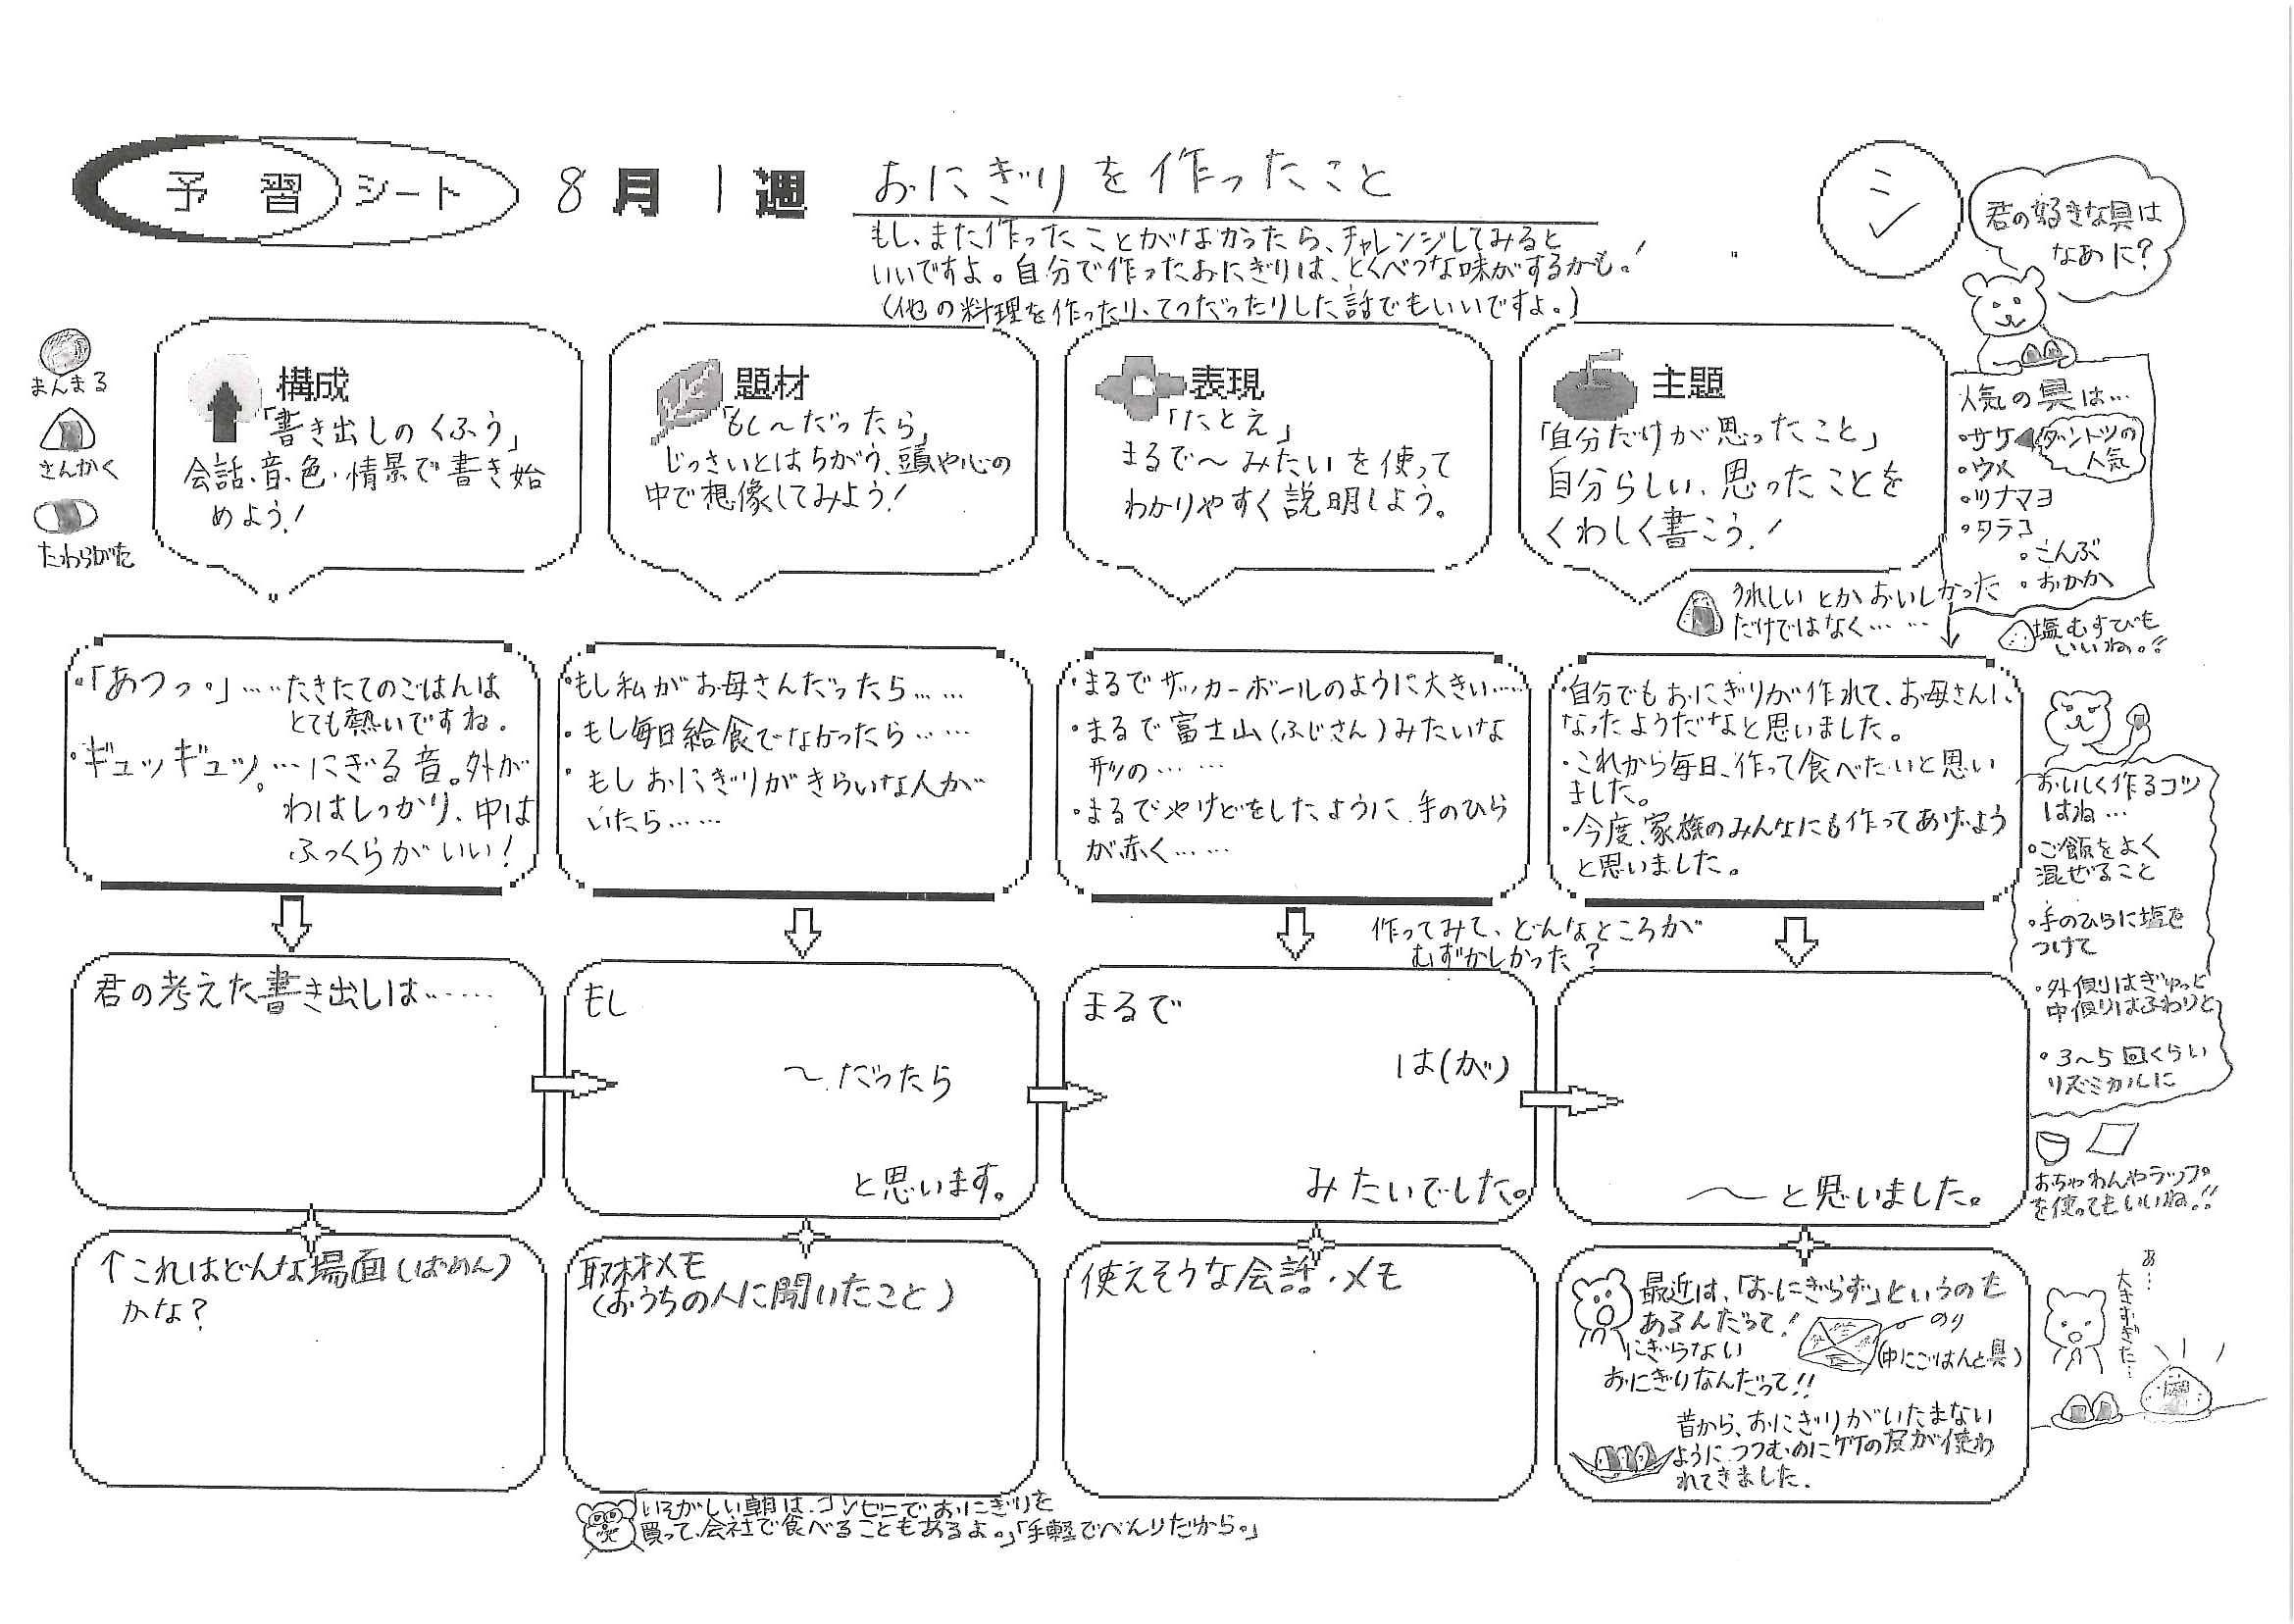 予習シート 8月1週 おにぎりを作ったこと
もし、まだ作ったことがなかったら、チャレンジしてみると
いいですよ。自分で作ったおにぎりは、とくべつな味がするかも!
(他の料理を作ったり、てつだったりした話でもいいですよ。)
ミシ
君の好きな具は
なあに?
まんまる
さんかく
たわらがた
構成
「書き出しのくふう」
会話、音、色・情景で書き始
めよう!
題材
「もし〜だったら」
じっさいとはちがう、頭や心の
中で想像してみよう!
表現
「たとえ」
まるで〜みたいを使って
わかりやすく説明しよう。
主題
「自分だけが思ったこと」
自分らしい、思ったことを
くわしく書こう!
人気の具は…
・サケ
ダントツの
人気
・ウメ
・ツナマヨ
・タラコ
・こんぶ
・おかか
うれしいとかおいしかった
だけではなく……
塩むすびも
いいね。!!
・「あつっ。」……たきたてのごはんは
とても熱いですね。
・ギュッギュッ。…にぎる音。外が
わはしっかり、中は
ふっくらがいい!
・もし私がお母さんだったら……
・もし毎日給食でなかったら……
・もしおにぎりがきらいな人が
いたら……
・まるでサッカーボールのように大きい……
・まるで富士山(ふじさん)みたいな
形の……
・まるでやけどをしたように手のひら
が赤く……
・自分でもおにぎりが作れて、お母さんに
なったようだなと思いました。
・これから毎日、作って食べたいと思い
ました。
・今度、家族のみんなにも作ってあげよう
と思いました。
おいしく作るコツ
はね…
・ご飯をよく
混ぜること
・手のひらに塩を
つけて
・外側はぎゅっと
中側はふわりと
・3〜5回くらい
リズミカルに
おちゃわんやラップ
を使ってもいいね。!!
作ってみて、どんなところが
むずかしかった?
君の考えた書き出しは……
もし
〜だったら
と思います。
まるで
は(が)
みたいでした。
〜と思いました。
↑これはどんな場面(ばめん)
かな?
取材メモ
(おうちの人に聞いたこと)
使えそうな会話・メモ
最近は、「おにぎらず」というのも
あるんだって!
にぎらない
おにぎりなんだって!!
のり
(中にごはんと具)
昔から、おにぎりがいたまない
ようにつつむのにタケの皮が使わ
れてきました。
あ…
大きすぎた…
「いそがしい朝は、コンビニでおにぎりを
買って、会社で食べることもあるよ。」「手軽でべんりだから。」